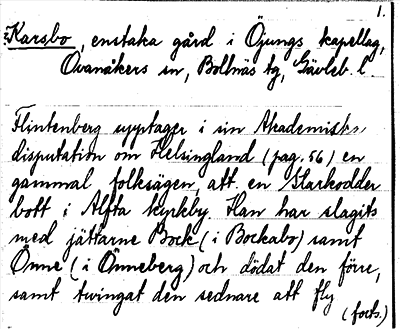 1.
Karsbo, enstaka gård i Öjungs kapellag,
Ovanåkers sn, Bollnäs tg, Gävleb. l.
Flintenberg upptager i sin Akademiska
disputation om Helsingland (pag. 56) en
gammal folksägen, att en Starkodder
bott i Alfta kyrkby. Han har slagits
med jättarne Bock (i Bockabo) samt
Önne (i Önneberg) och dödat den förre,
samt tvingat den sednare att fly
(forts.)